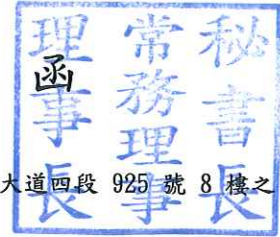 秘書長
常務理事
理事長
函
大道四段 925 號 8 樓之